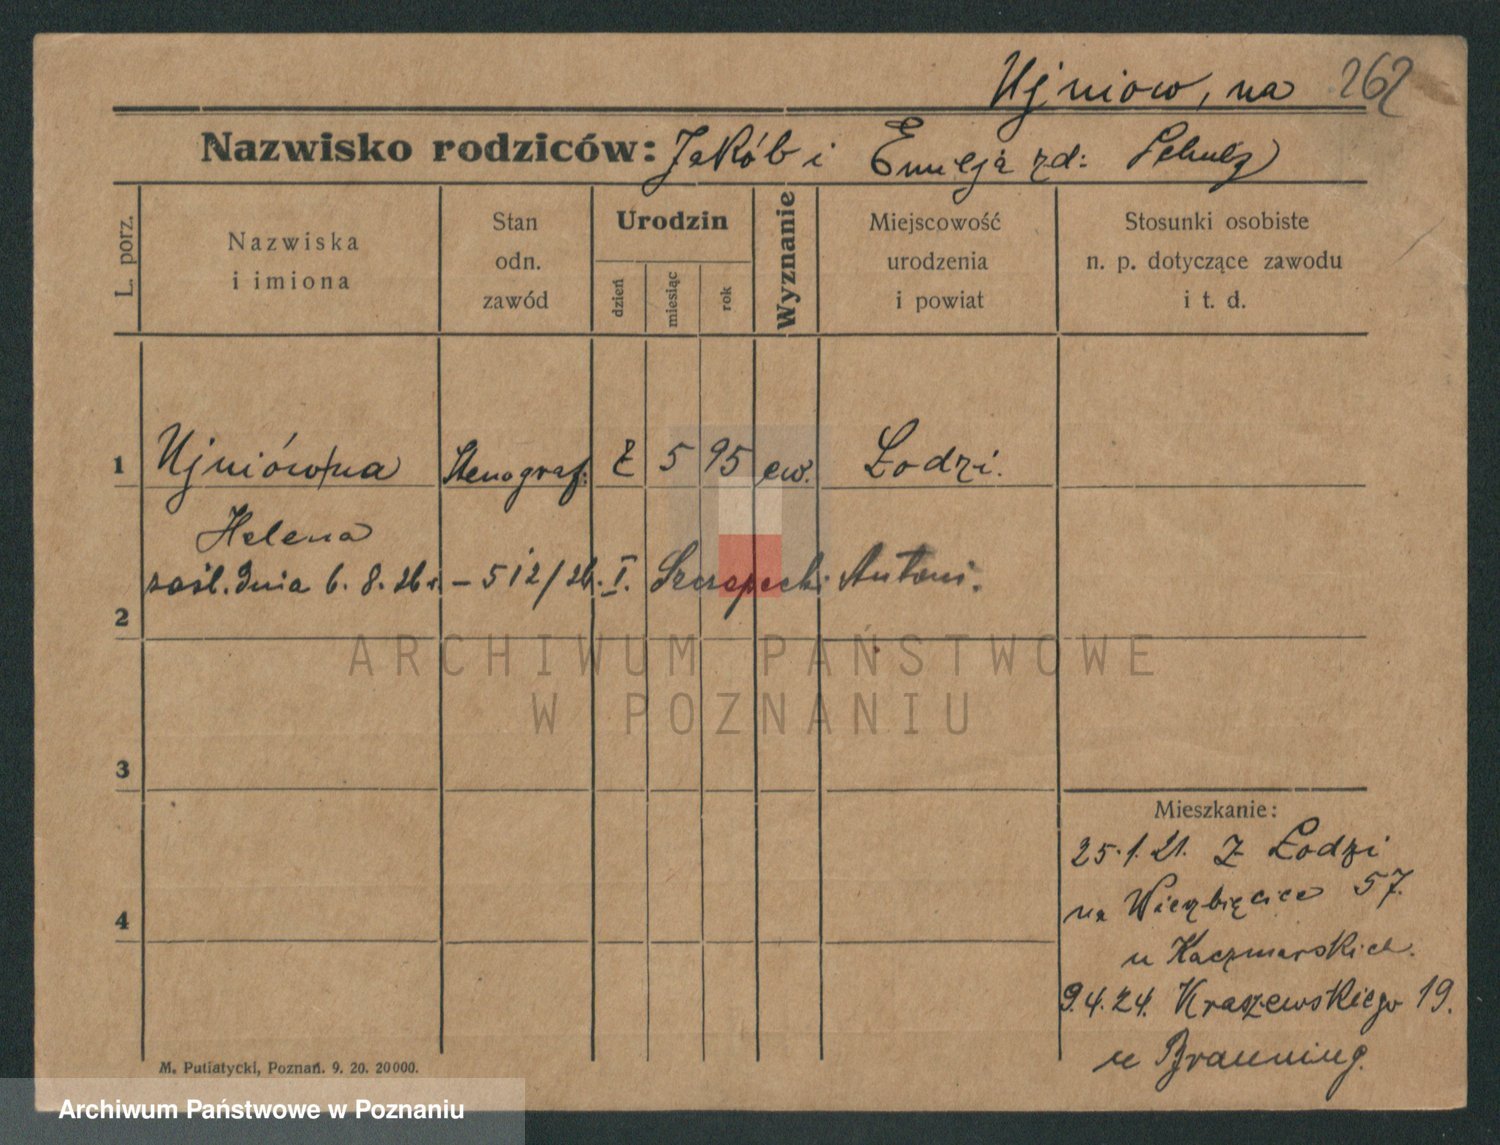 Ujniow, na 262
Nazwisko rodziców: Jakób i Emilja zd: Schulz
L. porz.
Nazwiska
i imiona
Stan
odn.
zawód
Urodzin
dzień
miesiąc
rok
Wyznanie
Miejscowość
urodzenia
i powiat
Stosunki osobiste
n. p. dotyczące zawodu
i t. d.
1 Ujniówna Stenograf. 2 5 95 ew. Łodzi.
Helena
zaśl. dnia 6. 8. 26 r. – 512/26. I. Szczepecki Antoni.
2
3
4
ARCHIWUM PAŃSTWOWE
W POZNANIU
Mieszkanie:
25.1.21. z Łodzi
na Wierzbięcice 57.
u Kaczmarskich.
9.4.24. Kraszewskiego 19.
u Brauning.
M. Putiatycki, Poznań. 9. 20. 20000.
Archiwum Państwowe w Poznaniu